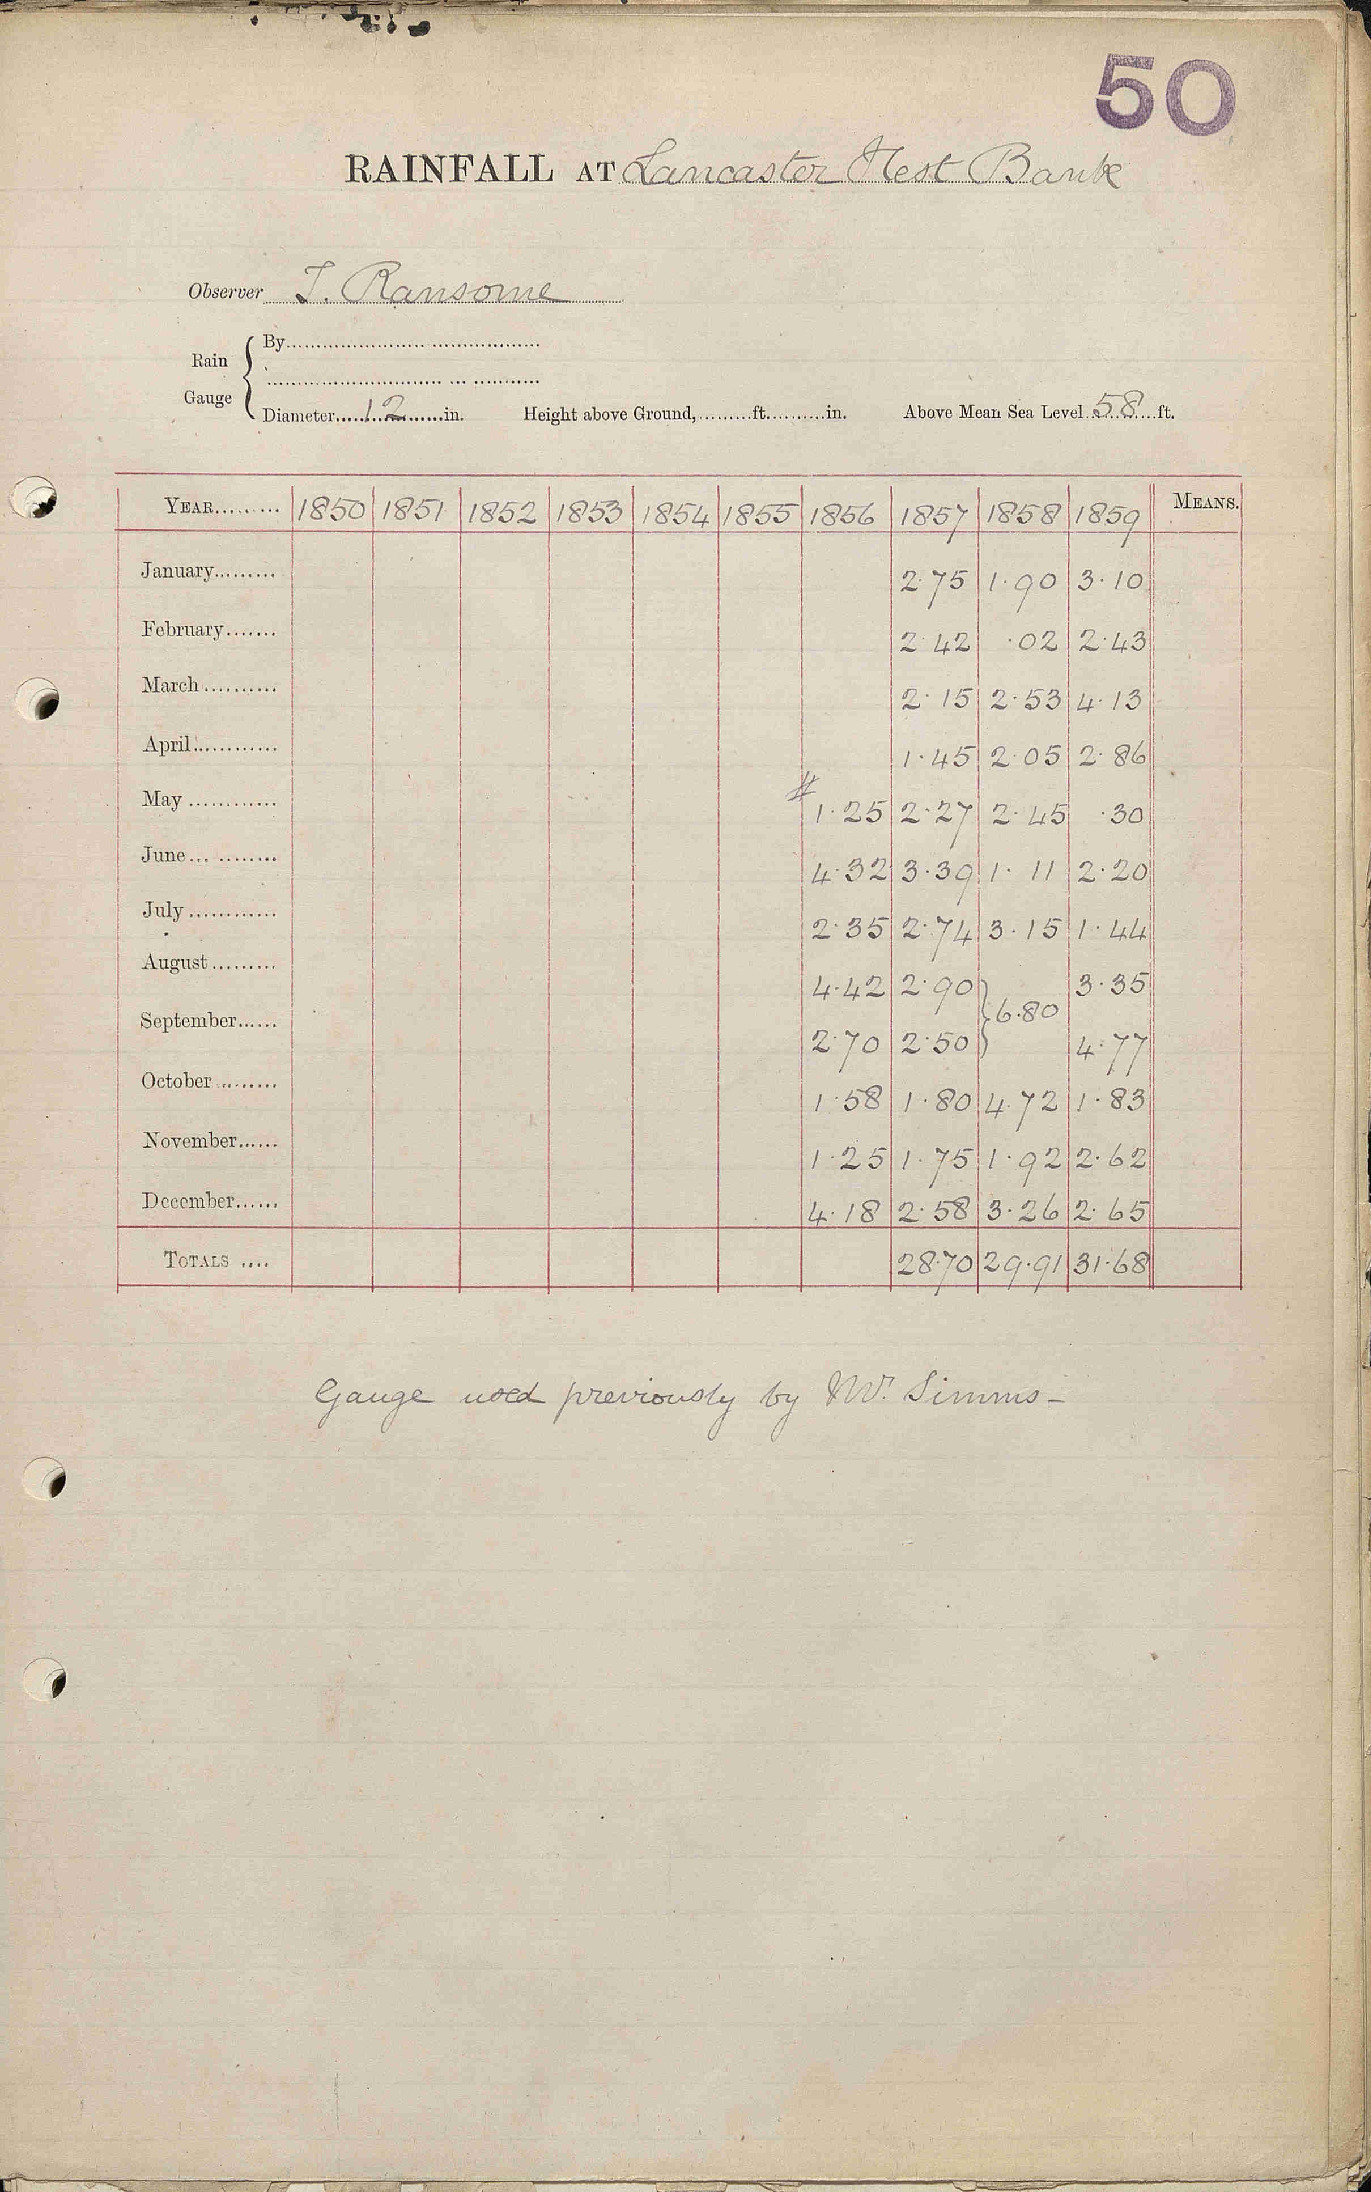 50
RAINFALL AT Lancaster Hest Bank
Observer T. Ransome
Rain Gauge { By
Diameter 12 in. Height above Ground, ft. in. Above Mean Sea Level 58 ft.
YEAR 1850 1851 1852 1853 1854 1855 1856 1857 1858 1859 MEANS.
January 2.75 1.90 3.10
February 2.42 .02 2.43
March 2.15 2.53 4.13
April 1.45 2.05 2.86
May # 1.25 2.27 2.45 .30
June 4.32 3.39 1.11 2.20
July 2.35 2.74 3.15 1.44
August 4.42 2.90 } 6.80 3.35
September 2.70 2.50 4.77
October 1.58 1.80 4.72 1.83
November 1.25 1.75 1.92 2.62
December 4.18 2.58 3.26 2.65
TOTALS 28.70 29.91 31.68
Gauge used previously by Mr. Simms -